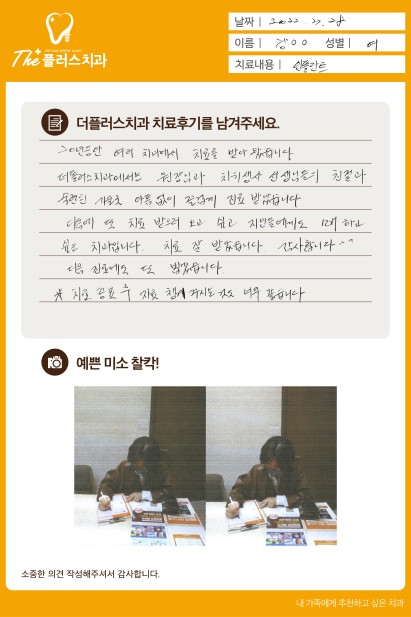 THE PLUS DENTAL CLINIC
The+ 플러스치과
날짜 | 2022. 7. 28
이름 | 강OO 성별 | 여
치료내용 | 임플란트
더플러스치과 치료후기를 남겨주세요.
30년동안 여러 치과에서 치료를 받아 왔습니다
더플러스치과에서는 원장님과 치위생사 선생님들의 친절과
숙련된 아픔 없이 편안하게 진료 받았습니다
다음에 또 치료 받으러 오고 싶고 지인들에게도 하고
싶은 치과입니다. 치료 잘 받았습니다. 감사합니다^^
다음 진료에도 또 뵙겠습니다.
※ 치료 종료 후 자료 챙겨 주시는 것도 너무 좋습니다
예쁜 미소 찰칵!
소중한 의견 작성해주셔서 감사합니다.
내 가족에게 추천하고 싶은 치과